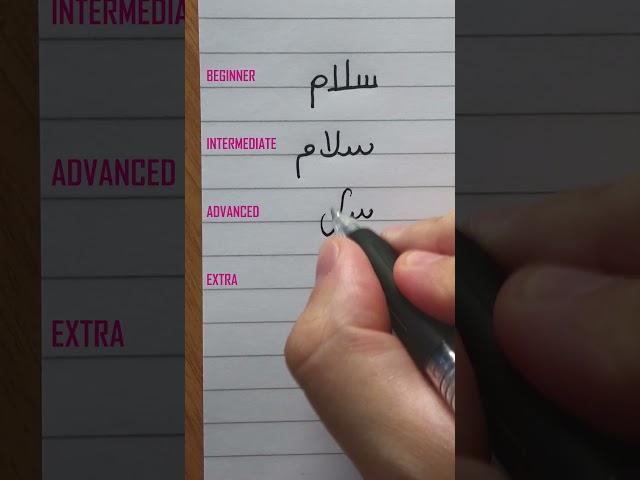 INTERMEDIA
ADVANCED
EXTRA
BEGINNER سلام
INTERMEDIATE سلام
ADVANCED
EXTRA